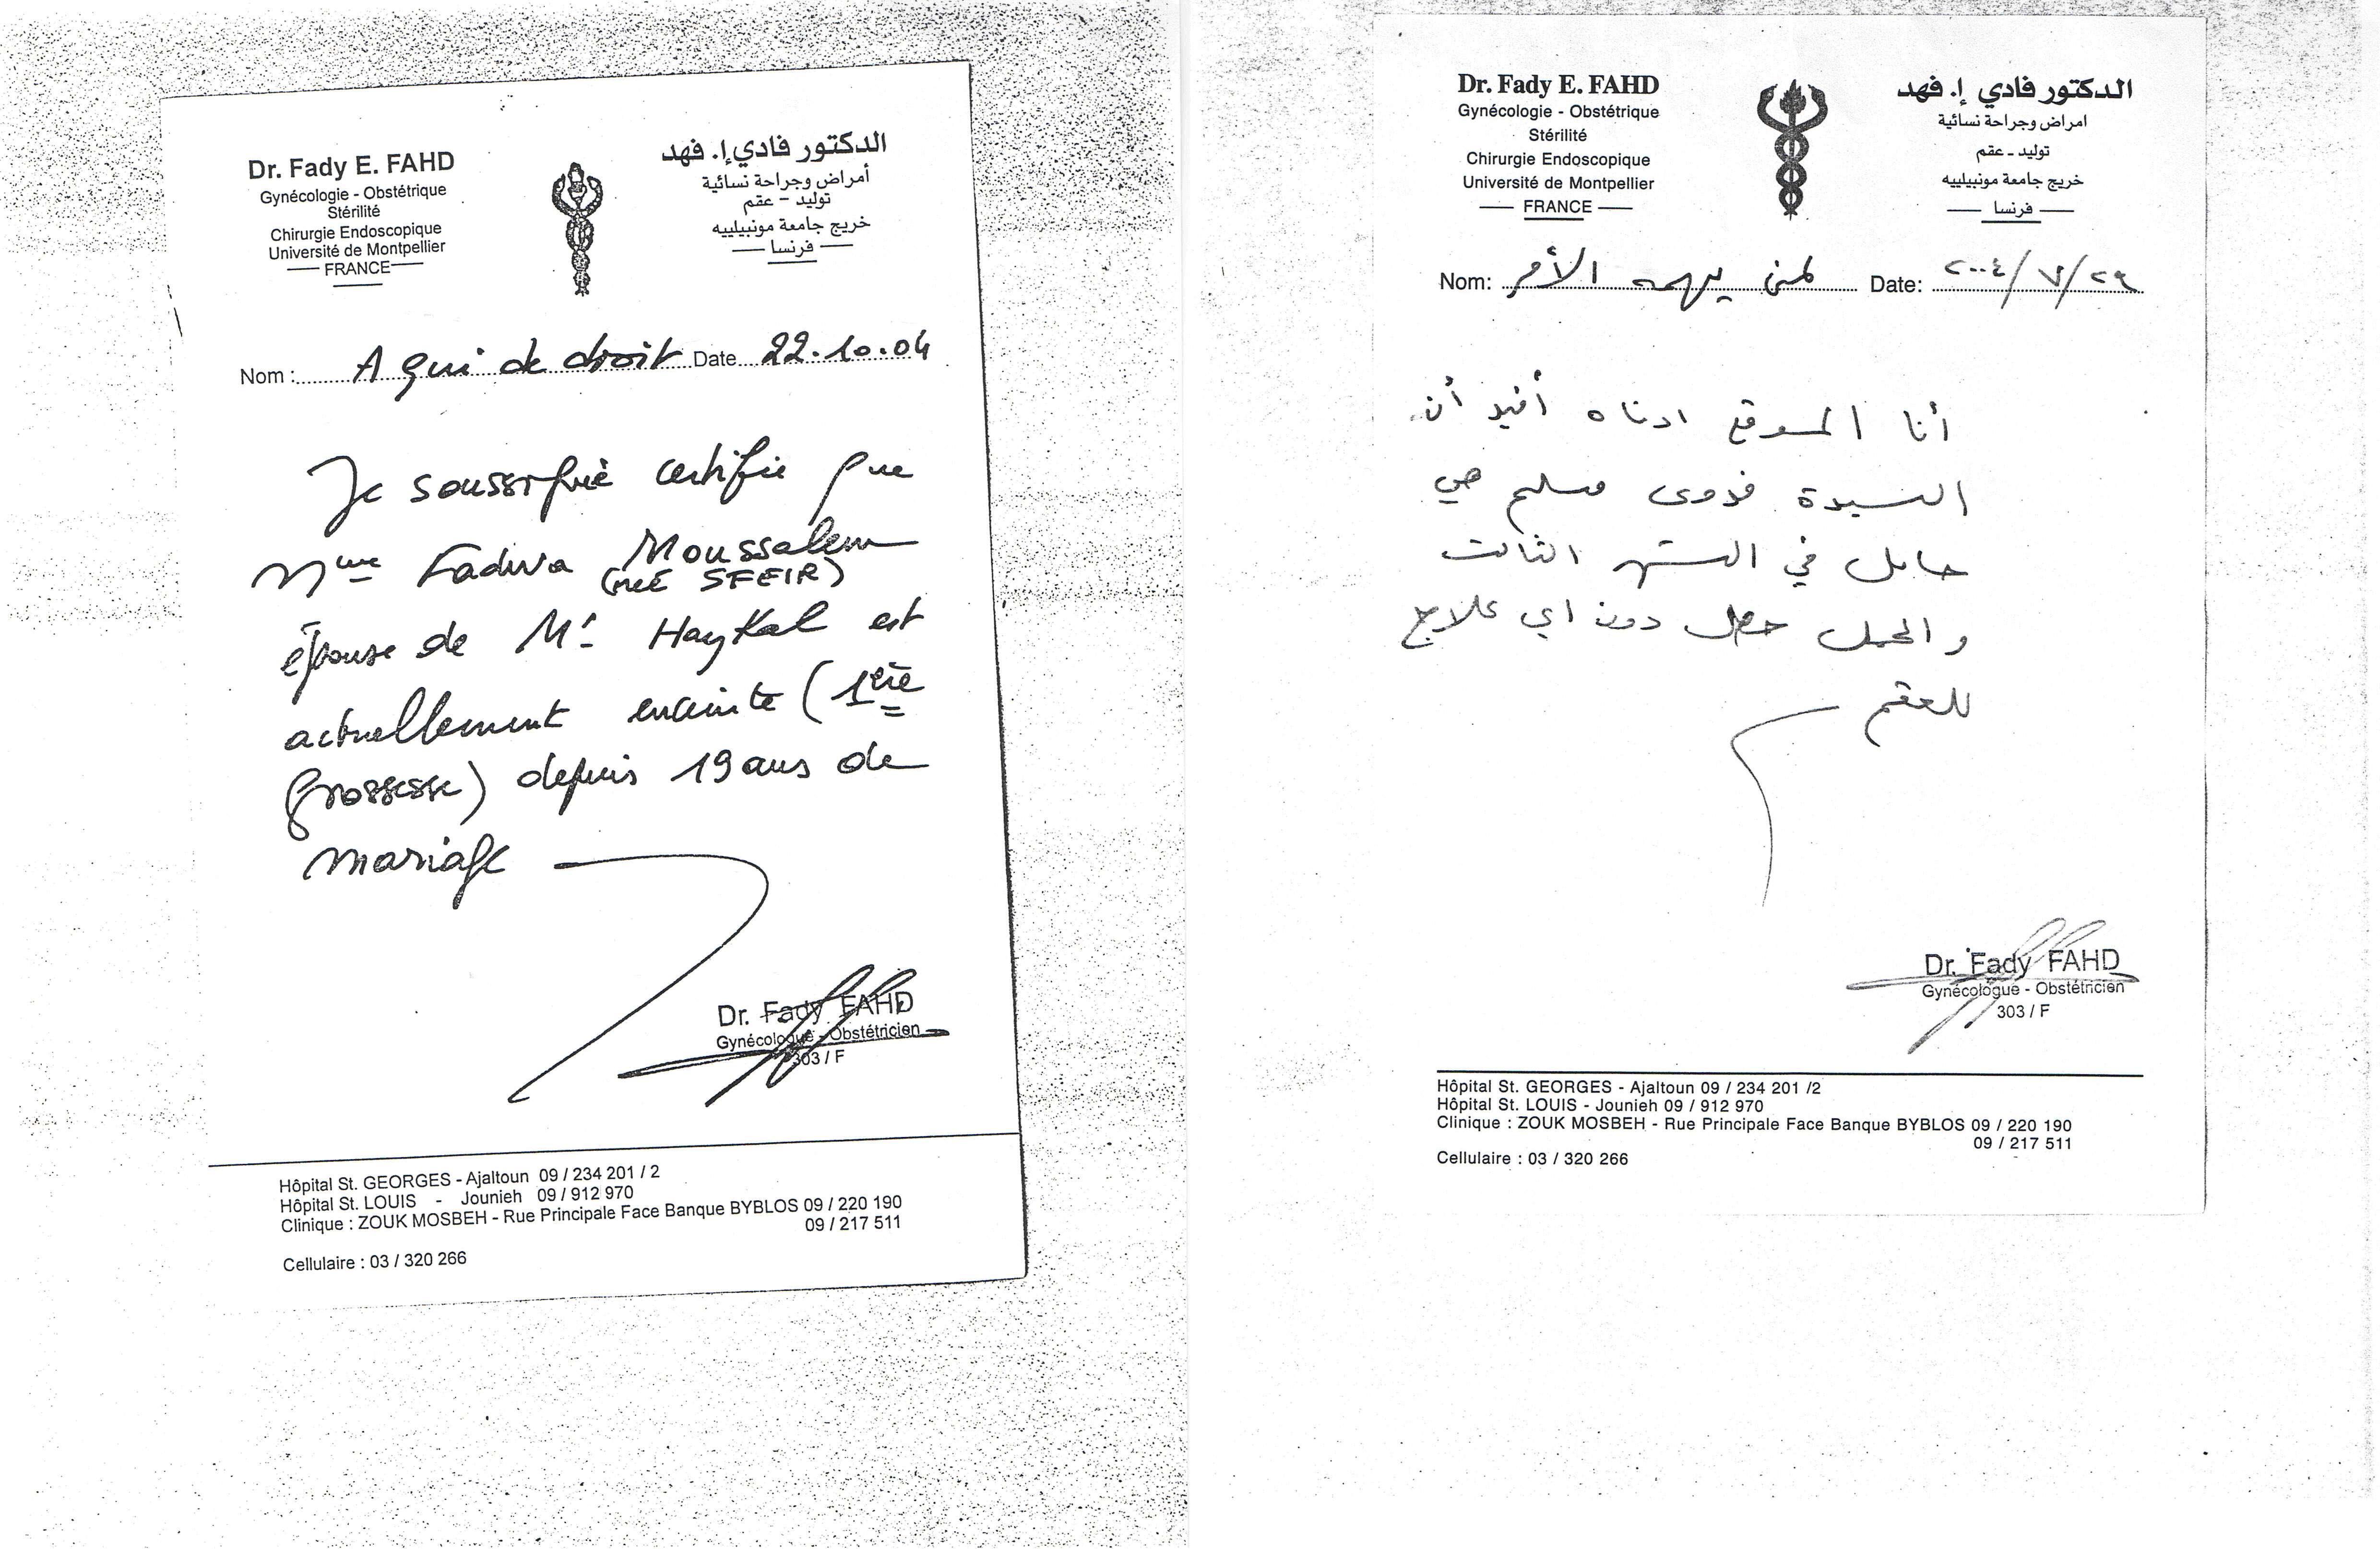 Dr. Fady E. FAHD
Gynécologie - Obstétrique
Stérilité
Chirurgie Endoscopique
Université de Montpellier
FRANCE
الدكتور فادي إ. فهد
أمراض وجراحة نسائية
توليد - عقم
خريج جامعة مونبيلييه
فرنسا
Nom : A qui de droit Date 22.10.04
Je soussigné certifie que
Mme Fadwa Moussalem
(née SFEIR)
épouse de Mr Haykal est
actuellement enceinte (1ère
grossesse) depuis 19 ans de
mariage
Dr. Fady FAHD
Gynécologue - Obstétricien
303 / F
Hôpital St. GEORGES - Ajaltoun 09 / 234 201 / 2
Hôpital St. LOUIS - Jounieh 09 / 912 970
Clinique : ZOUK MOSBEH - Rue Principale Face Banque BYBLOS 09 / 220 190
09 / 217 511
Cellulaire : 03 / 320 266
Dr. Fady E. FAHD
Gynécologie - Obstétrique
Stérilité
Chirurgie Endoscopique
Université de Montpellier
FRANCE
الدكتور فادي إ. فهد
امراض وجراحة نسائية
توليد - عقم
خريج جامعة مونبيلييه
فرنسا
Nom: لمن يهمه الأمر Date: ٢٠٠٤/٧/٢٩
أنا الموقع ادناه أفيد أن
السيدة فدوى مسلم هي
حامل في الشهر الثالث
والحمل حصل دون اي علاج
للعقم
Dr. Fady FAHD
Gynécologue - Obstétricien
303 / F
Hôpital St. GEORGES - Ajaltoun 09 / 234 201 /2
Hôpital St. LOUIS - Jounieh 09 / 912 970
Clinique : ZOUK MOSBEH - Rue Principale Face Banque BYBLOS 09 / 220 190
09 / 217 511
Cellulaire : 03 / 320 266